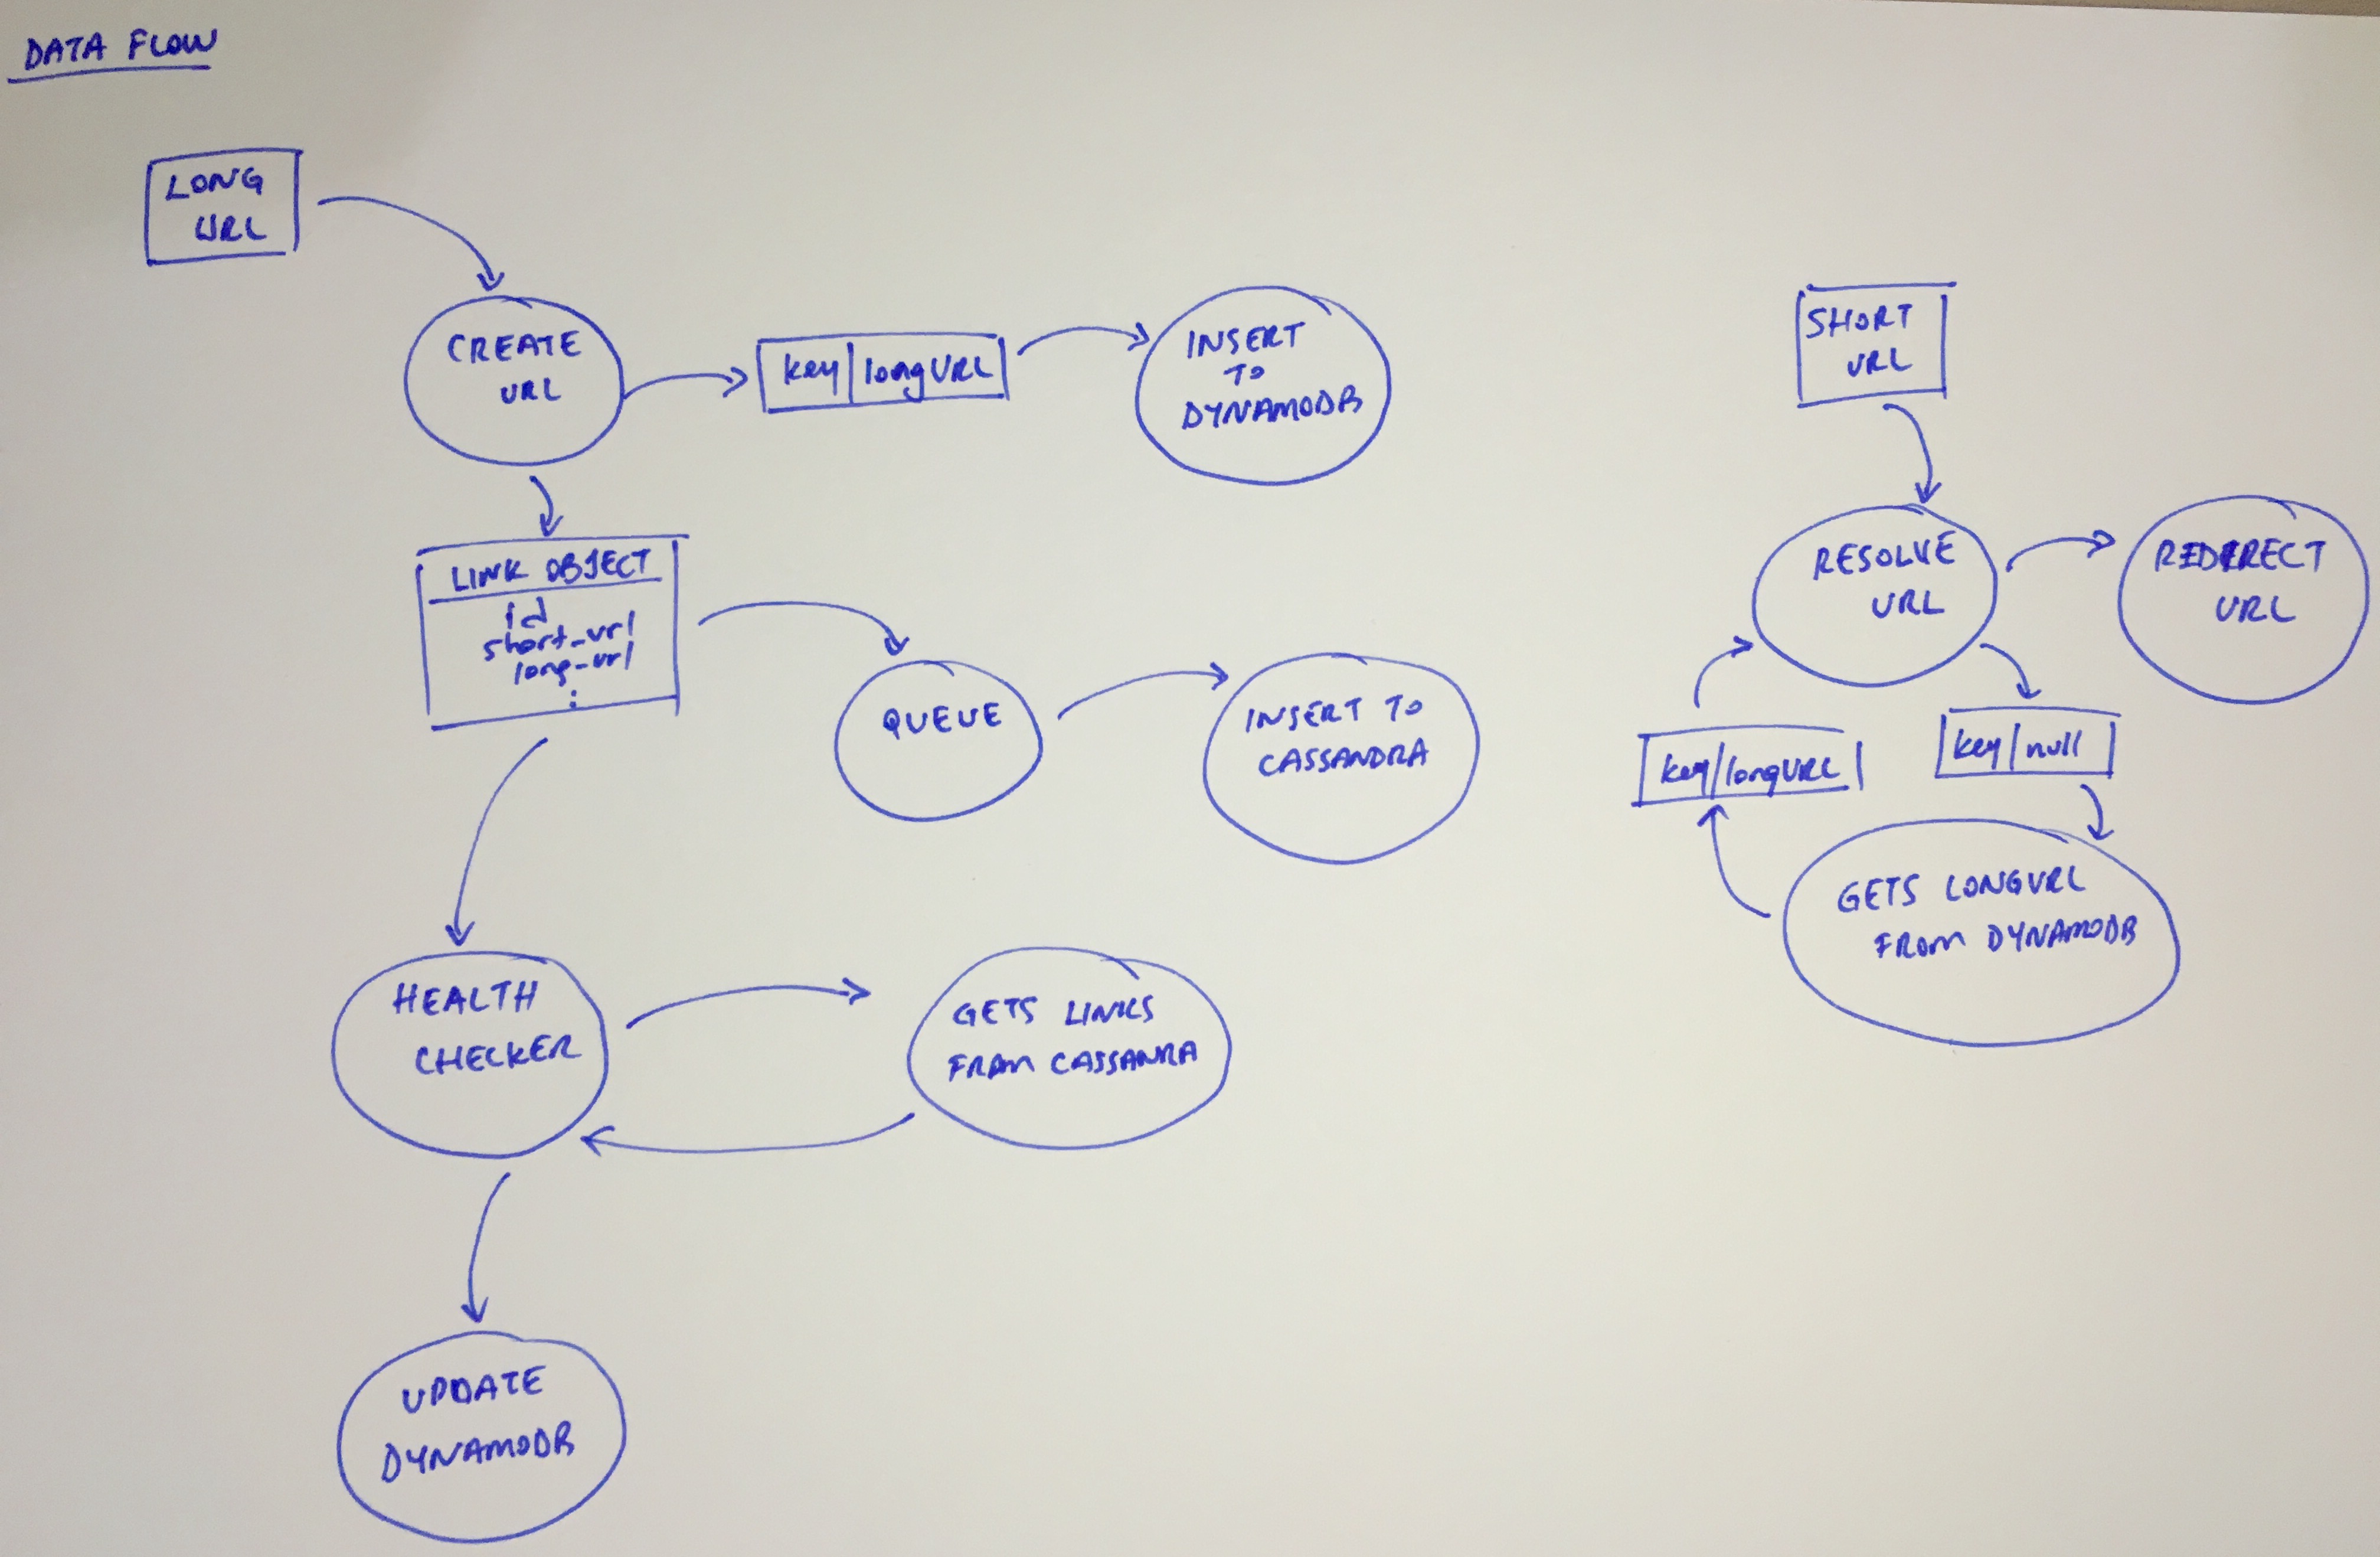 DATA FLOW
LONG
URL
CREATE
URL
key|longURL
INSERT
TO
DYNAMODB
LINK OBJECT
id
short_url
long_url
:
QUEUE
INSERT TO
CASSANDRA
HEALTH
CHECKER
GETS LINKS
FROM CASSANRA
UPDATE
DYNAMODB
SHORT
URL
RESOLVE
URL
REDIRECT
URL
key|longURL
key|null
GETS LONGURL
FROM DYNAMODB